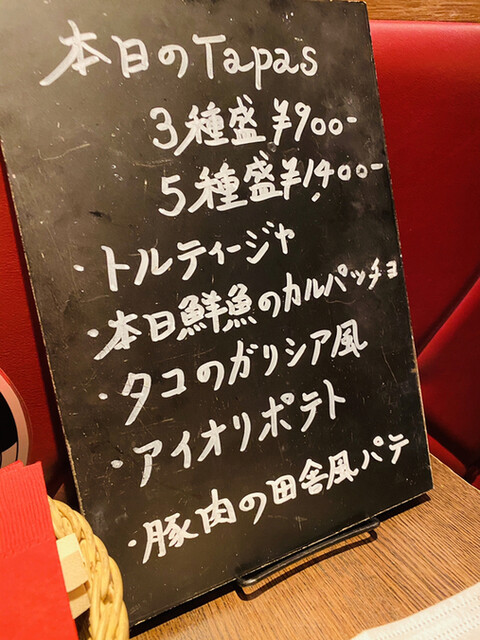 本日のTapas
3種盛¥900-
5種盛¥1,400-
・トルティージャ
・本日鮮魚のカルパッチョ
・タコのガリシア風
・アイオリポテト
・豚肉の田舎風パテ